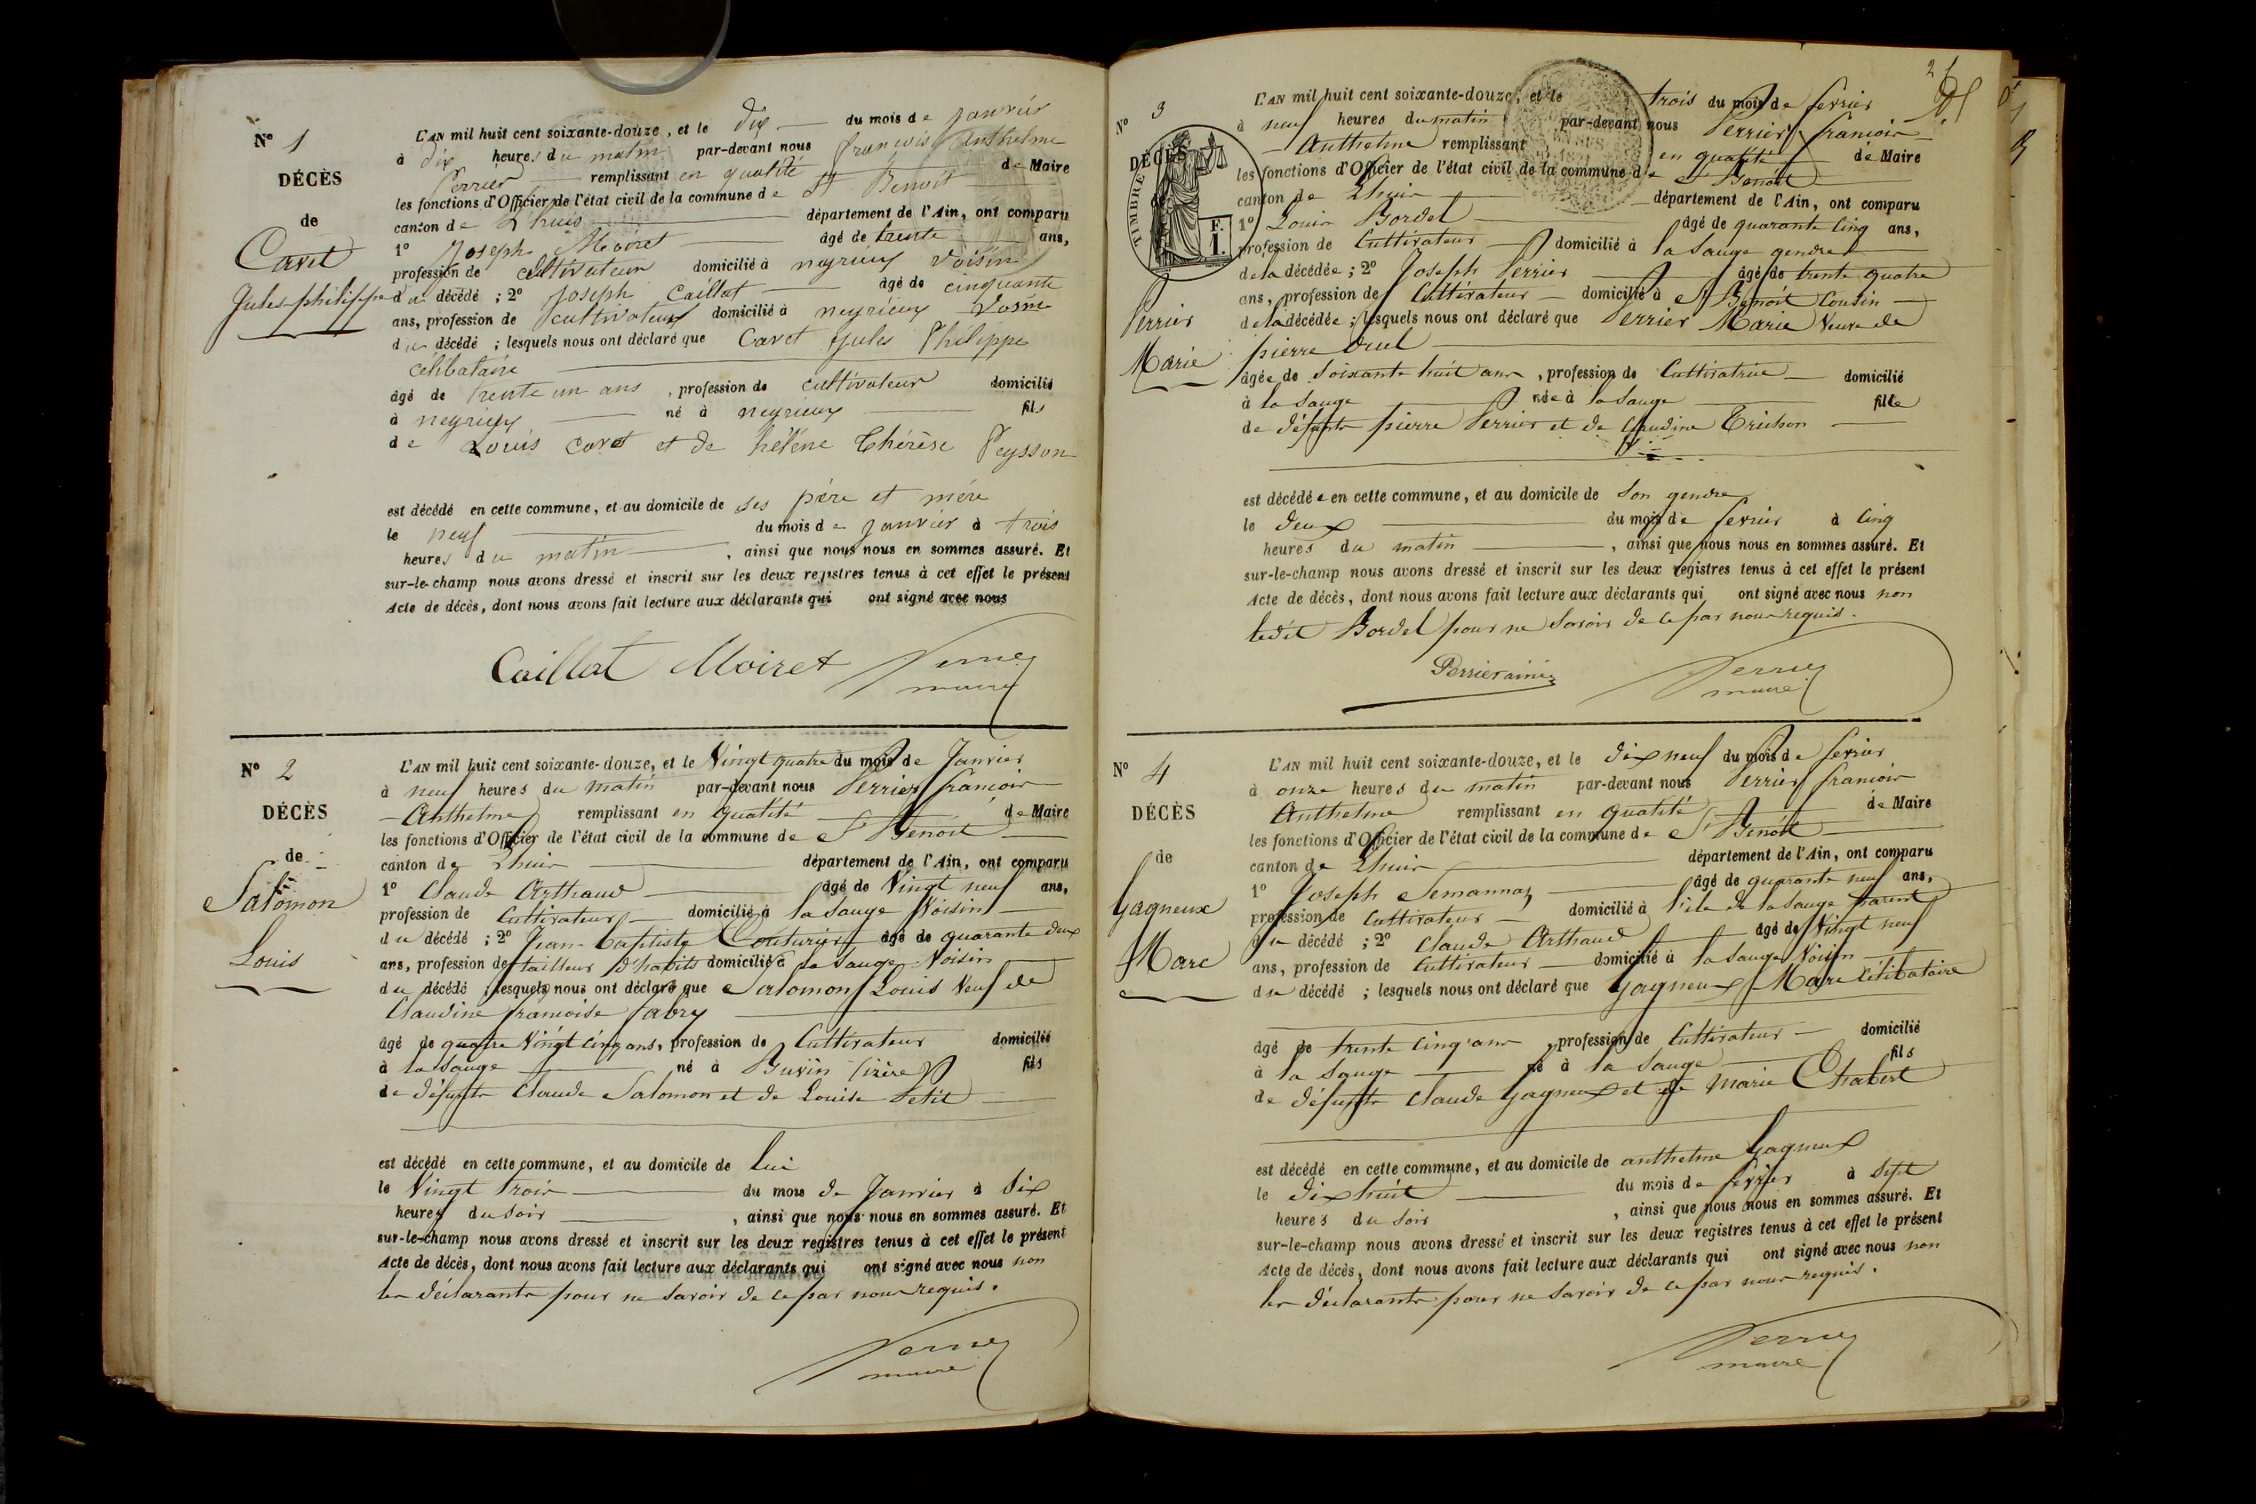 N° 1
DÉCÈS
de
Cavet
Jules philippe
L'AN mil huit cent soixante-douze, et le dix du mois de janvier
à dix heures du matin par-devant nous françois Anthelme
Perrier remplissant en qualité de Maire
les fonctions d'Officier de l'état civil de la commune de St Benoit
canton de Lhuis département de l'Ain, ont comparu
1° Joseph Moiret âgé de trente ans,
profession de cultivateur domicilié à neyrieux voisin
du décédé ; 2° Joseph Caillat âgé de cinquante
ans, profession de cultivateur domicilié à neyrieux voisin
du décédé ; lesquels nous ont déclaré que Cavet Jules Philippe
célibataire
âgé de trente un ans, profession de cultivateur domicilié
à neyrieux né à neyrieux fils
de Louis Cavet et de hélène Thérèse Peysson
est décédé en cette commune, et au domicile de ses père et mére
le neuf du mois de janvier à trois
heures du matin, ainsi que nous nous en sommes assuré. Et
sur-le-champ nous avons dressé et inscrit sur les deux registres tenus à cet effet le présent
Acte de décès, dont nous avons fait lecture aux déclarants qui ont signé avec nous
Caillat Moiret Perrier
maire
N° 2
DÉCÈS
de
Salomon
Louis
L'AN mil huit cent soixante-douze, et le Vingt quatre du mois de Janvier
à neuf heures du matin par-devant nous Perrier françois
Anthelme remplissant en qualité de Maire
les fonctions d'Officier de l'état civil de la commune de St Benoit
canton de Lhuis département de l'Ain, ont comparu
1° Claude Arthaud âgé de Vingt neuf ans,
profession de Cultivateur domicilié à la Sauge Voisin
du décédé ; 2° Jean-Baptiste Couturier âgé de quarante deux
ans, profession de tailleur d'habits domicilié à la Sauge Voisin
du décédé ; lesquels nous ont déclaré que Salomon Louis Veuf de
Claudine françoise fabry
âgé de quatre Vingt Cinq ans, profession de Cultivateur domicilié
à la Sauge né à fils
de défunts Claude Salomon et de Louise Petit
est décédé en cette commune, et au domicile de lui
le Vingt trois du mois de Janvier à Six
heures du soir, ainsi que nous nous en sommes assuré. Et
sur-le-champ nous avons dressé et inscrit sur les deux registres tenus à cet effet le présent
Acte de décès, dont nous avons fait lecture aux déclarants qui ont signé avec nous non
les déclarants pour ne Savoir de ce par nous requis.
Perrier
maire
N° 3
DÉCÈS
TIMBRE
F.
1.
Perrier
Marie
L'AN mil huit cent soixante-douze, et le trois du mois de fevrier
à neuf heures du matin par-devant nous Perrier françois
Anthelme remplissant en qualité de Maire
les fonctions d'Officier de l'état civil de la commune de St Benoit
canton de Lhuis département de l'Ain, ont comparu
1° Louis Bordel âgé de quarante Cinq ans,
profession de Cultivateur domicilié à la Sauge gendre
de la décédée ; 2° Joseph Perrier âgé de trente quatre
ans, profession de Cultivateur domicilié à St Benoit Cousin
de la décédée ; lesquels nous ont déclaré que Perrier Marie Veuve de
pierre
âgée de Soixante huit ans, profession de Cultivatrice domicilié
à la Sauge née à la Sauge fille
de défunts pierre Perrier et de Claudine
est décédée en cette commune, et au domicile de Son gendre
le deux du mois de fevrier à Cinq
heures du matin, ainsi que nous nous en sommes assuré. Et
sur-le-champ nous avons dressé et inscrit sur les deux registres tenus à cet effet le présent
Acte de décès, dont nous avons fait lecture aux déclarants qui ont signé avec nous non
ledit Bordel pour ne Savoir de ce par nous requis.
Perrier ainé Perrier
maire
N° 4
DÉCÈS
de
Gagneux
Marc
L'AN mil huit cent soixante-douze, et le dix neuf du mois de fevrier
à onze heures du matin par-devant nous Perrier françois
Anthelme remplissant en qualité de Maire
les fonctions d'Officier de l'état civil de la commune de St Benoit
canton de Lhuis département de l'Ain, ont comparu
1° Joseph Semannaz âgé de quarante neuf ans,
profession de Cultivateur domicilié à l'île de la Sauge parent
du décédé ; 2° Claude Arthaud âgé de Vingt neuf
ans, profession de Cultivateur domicilié à la Sauge Voisin
du décédé ; lesquels nous ont déclaré que Gagneux Marc Célibataire
âgé de trente Cinq ans profession de Cultivateur domicilié
à la Sauge né à la Sauge fils
de défunts Claude Gagneux et de Marie Chabert
est décédé en cette commune, et au domicile de anthelme Gagneux
le dix huit du mois de fevrier à Sept
heures du Soir, ainsi que nous nous en sommes assuré. Et
sur-le-champ nous avons dressé et inscrit sur les deux registres tenus à cet effet le présent
Acte de décès, dont nous avons fait lecture aux déclarants qui ont signé avec nous non
les déclarants pour ne Savoir de ce par nous requis.
Perrier
maire